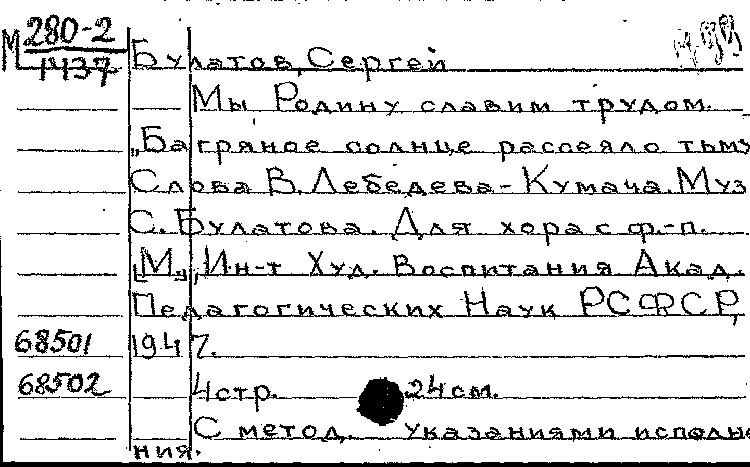 М 280-2
1437
Булатов, Сергей
Мы Родину славим трудом.
„Багряное солнце рассеяло тьму
Слова В. Лебедева-Кумача. Муз
С. Булатова. Для хора с ф.-п.
[М.], Ин-т Худ. Воспитания Акад.
Педагогических Наук РСФСР,
68501 1947.
68502 4 стр. 24 см.
С метод. указаниями исполне
ния.